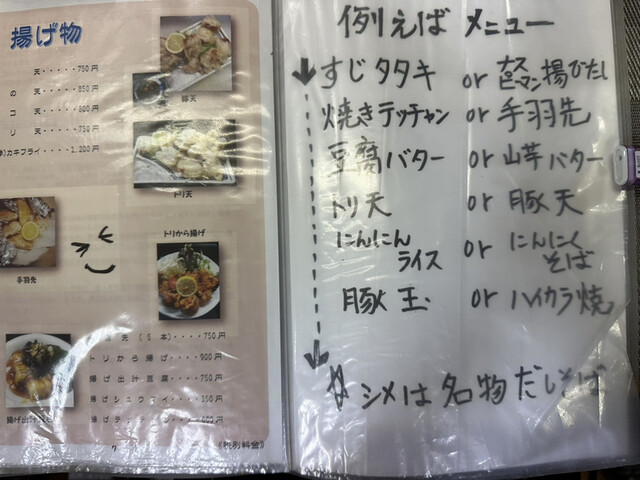 揚げ物
天・・・・・750円
の 天・・・・・850円
コ 天・・・・・800円
リ 天・・・・・750円
カキフライ・・・・1.200円
豚天
トリ天
トリから揚げ
手羽先
先 (5本)・・・・750円
トリから揚げ・・・・900円
揚げ出汁豆腐・・・・750円
揚げシュウマイ・・・
揚げ出汁
《税別料金》
例えば メニュー
すじタタキ or ナス ピーマン 揚びたし
焼きテッチャン or 手羽先
豆腐バター or 山芋バター
トリ天 or 豚天
にんにん ライス or にんにく そば
豚玉 or ハイカラ焼
シメは名物だしそば